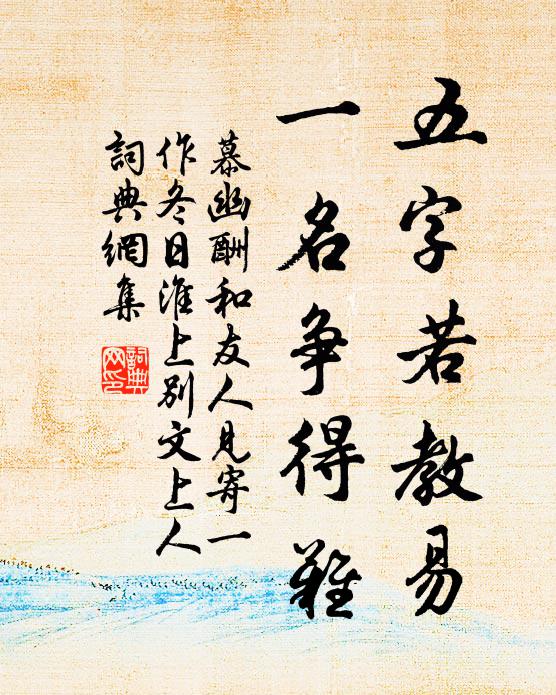 五字若教易
一名争得難
慕幽酬和友人見寄一
作冬日淮上別文上人
詞典網集
詞典网印